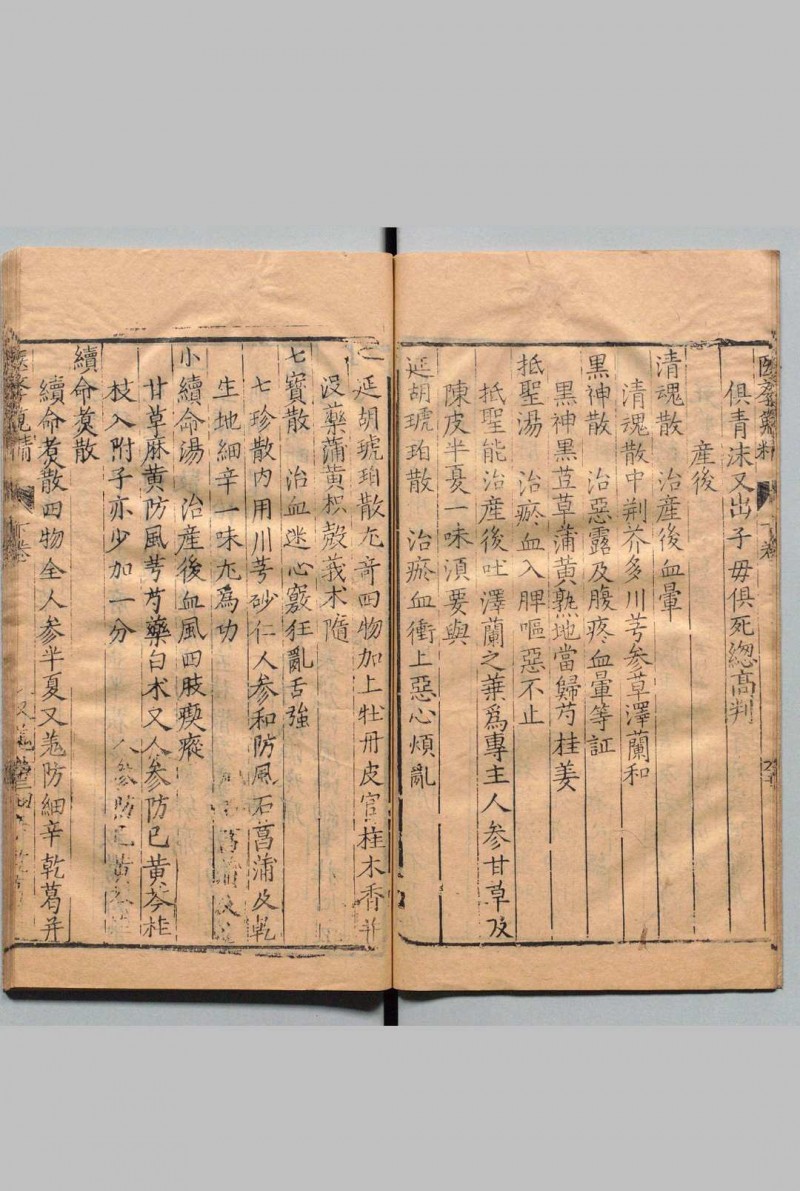 俱青沫又出子毋俱死緫高判
產後
清魂散　治產後血暈
清魂散中荆芥多川芎參草澤蘭和
黑神散　治惡露及腹疼血暈等証
黑神黑荳草蒲黃熟地當歸芍桂姜
抵聖湯　治瘀血入脾嘔惡不止
抵聖能治產後吐澤蘭之葉爲專主人參甘草及
陳皮半夏一味湏要與
延胡琥珀散　治瘀血衝上惡心煩亂
延胡琥珀散尤竒四物加上牡丹皮官桂木香并
沒藥蒲黃枳殼莪术隨
七寶散　治血迷心竅狂亂舌強
七珍散內用川芎砂仁人參和防風石菖蒲及乾
生地細辛一味尤爲功
小續命湯　治產後血風四肢瘈瘲
甘草麻黃防風芎芍藥白术又人參防已黃芩桂
枝入附子亦少加一分
續命煑散
續命煑散四物全人參半夏又羗防細辛乾葛并